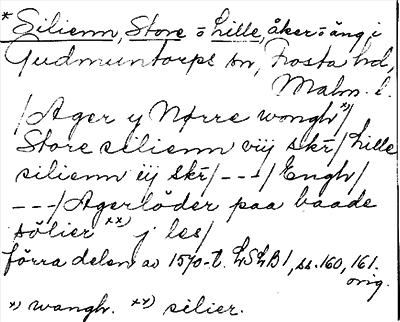 *Silienn, Store = Lille, åker = äng i
Gudmuntorps sn, Frosta hd,
Malm. l.
/Ager y Nørre wongh *)/
Store silienn vij skr/ Lille
silienn iij skr/ --- / Engh/
--- /Agerlöder paa baade
sölier **) j les/
förra delen av 1570-t. LSLB1, ss. 160, 161.
orig.
*) wangh. **) silier.